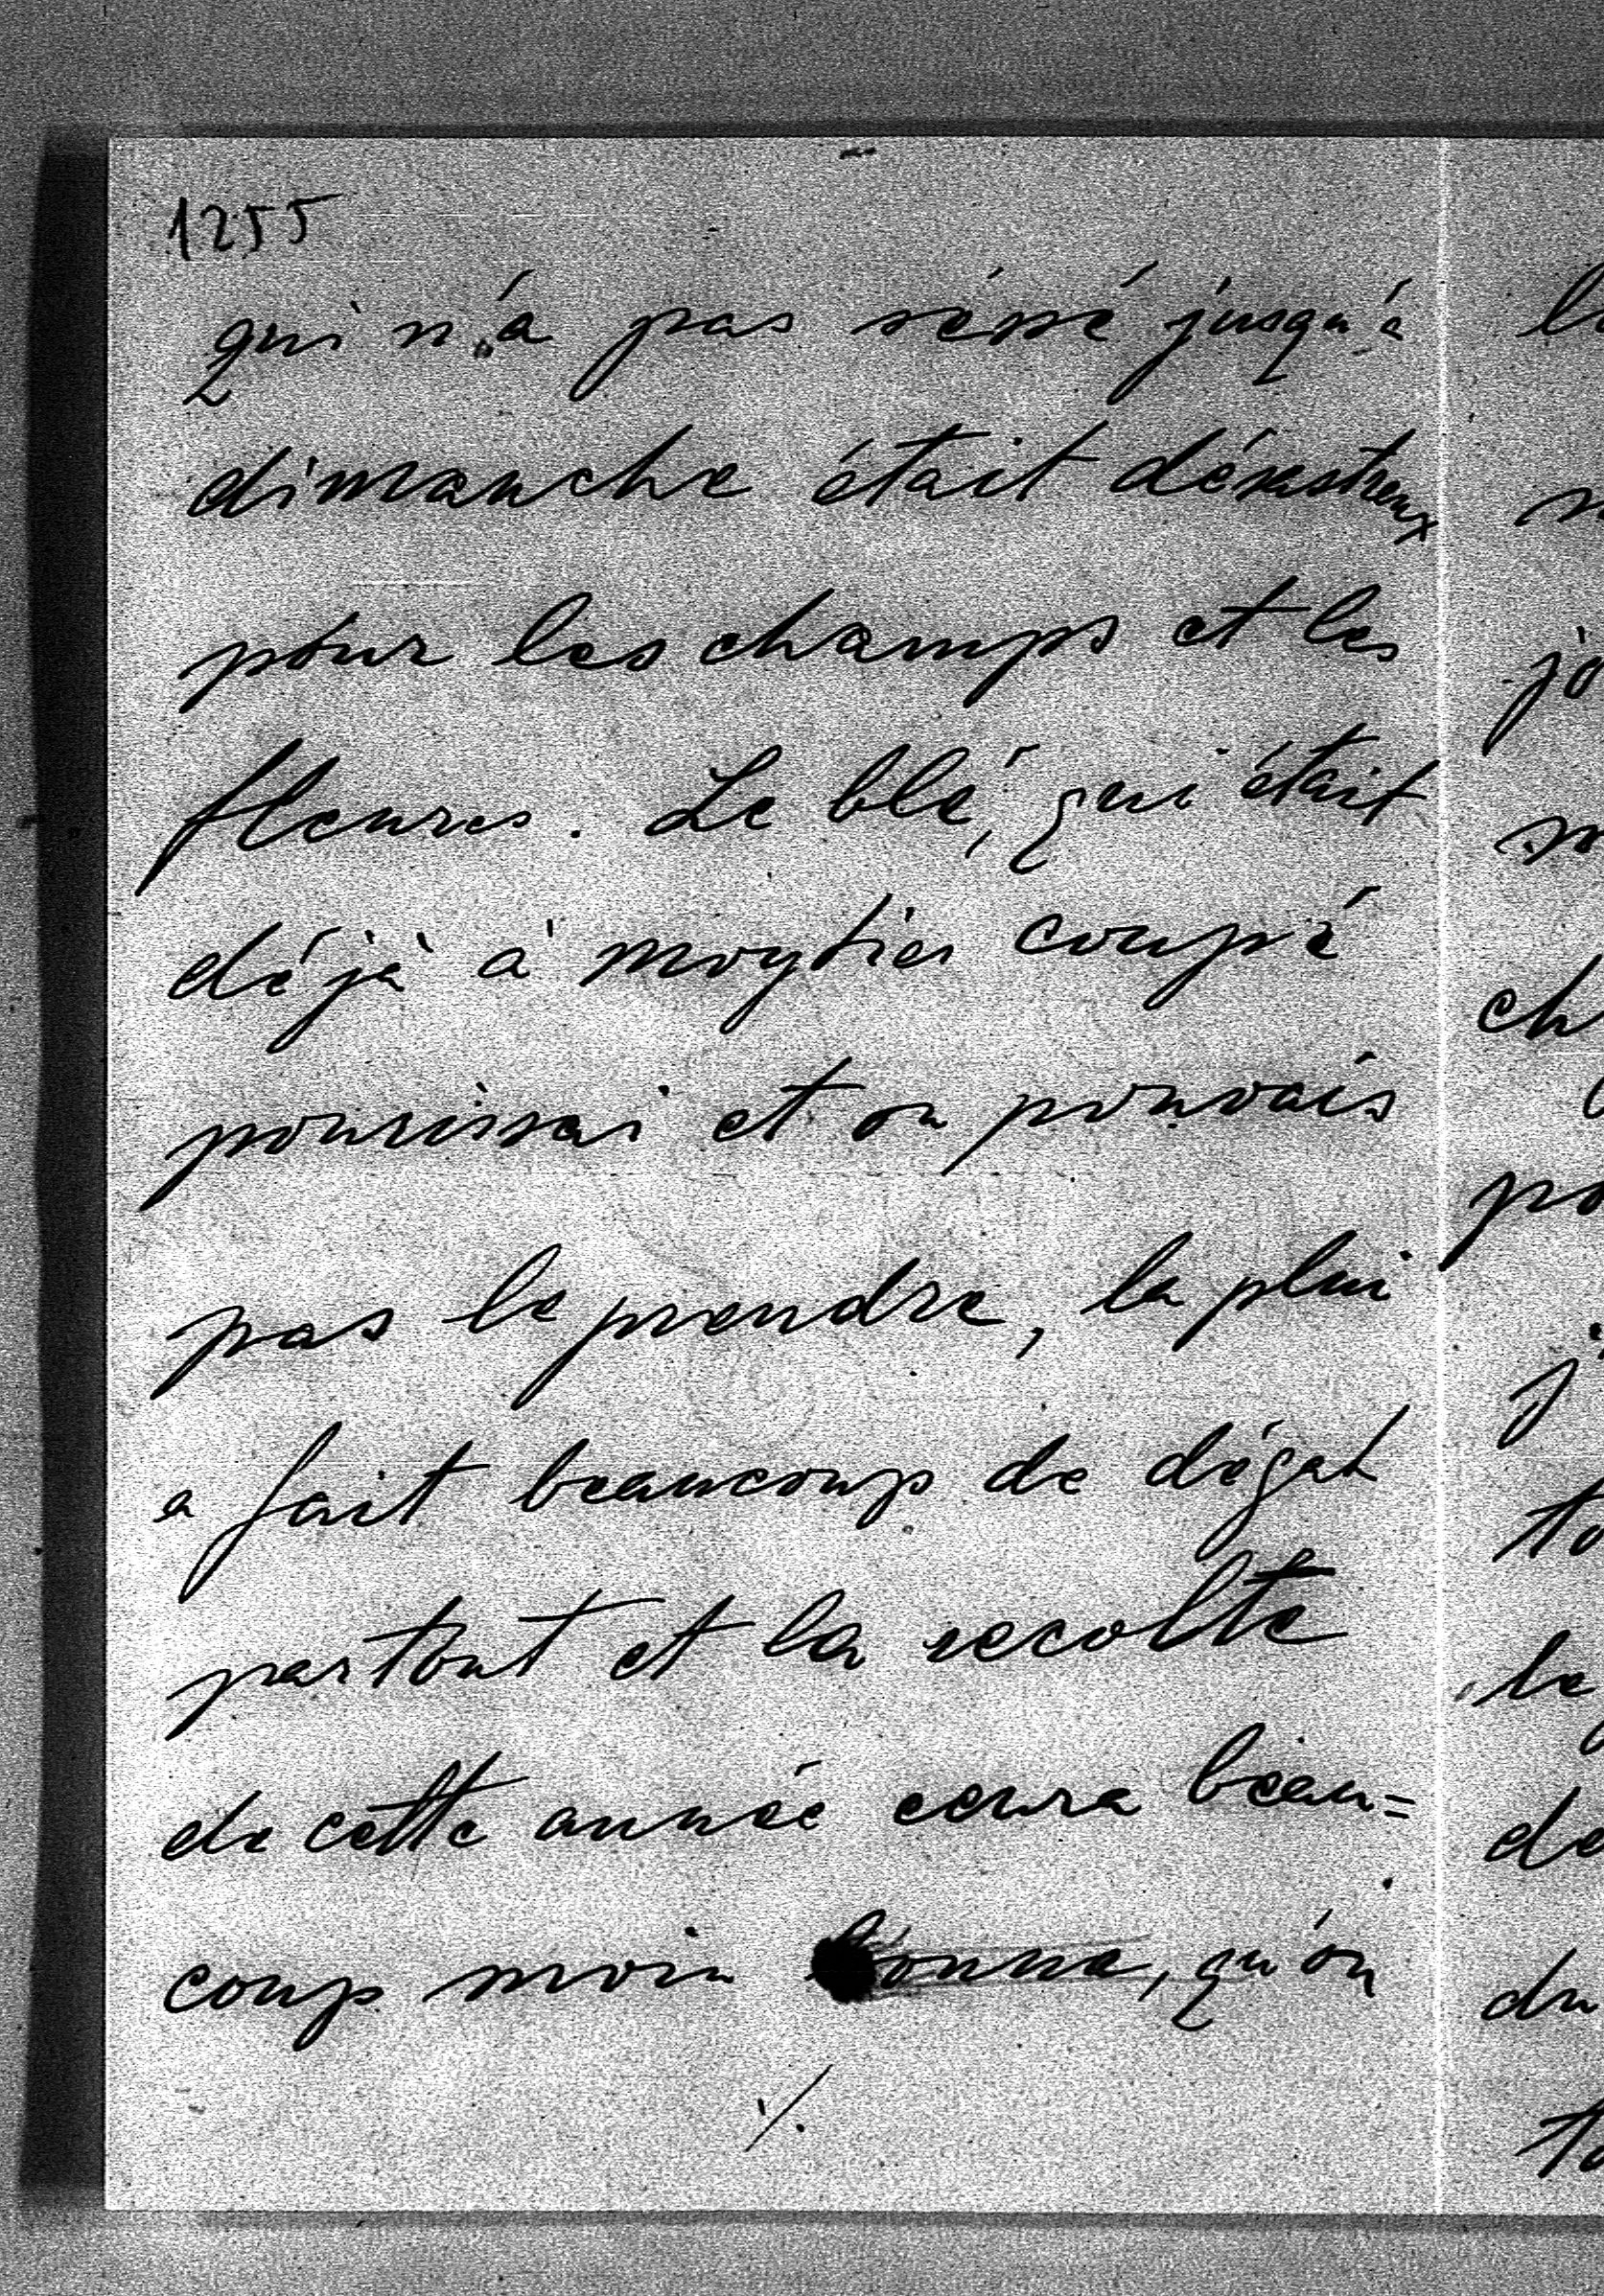 1255
qui n'a pas séssé jusqu'á
dimanche était désastreux
pour les champs et les
fleures. Le blé, qui était
déjà à moytier coupé
pourissai et on pouvais
pas le prendre, la plui
a fait beaucoup de dégat
partout et la recolte
de cette année ceura beau=
coup moin bonne, qu'on
./.